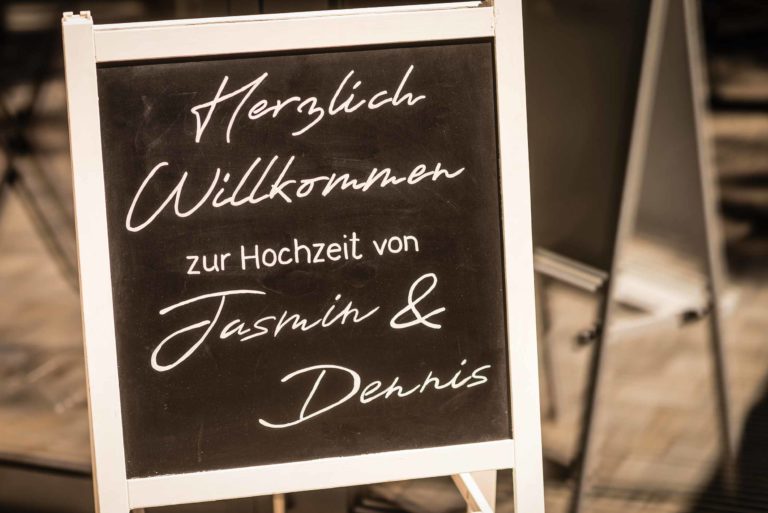 Herzlich
Willkommen
zur Hochzeit von
Jasmin &
Dennis